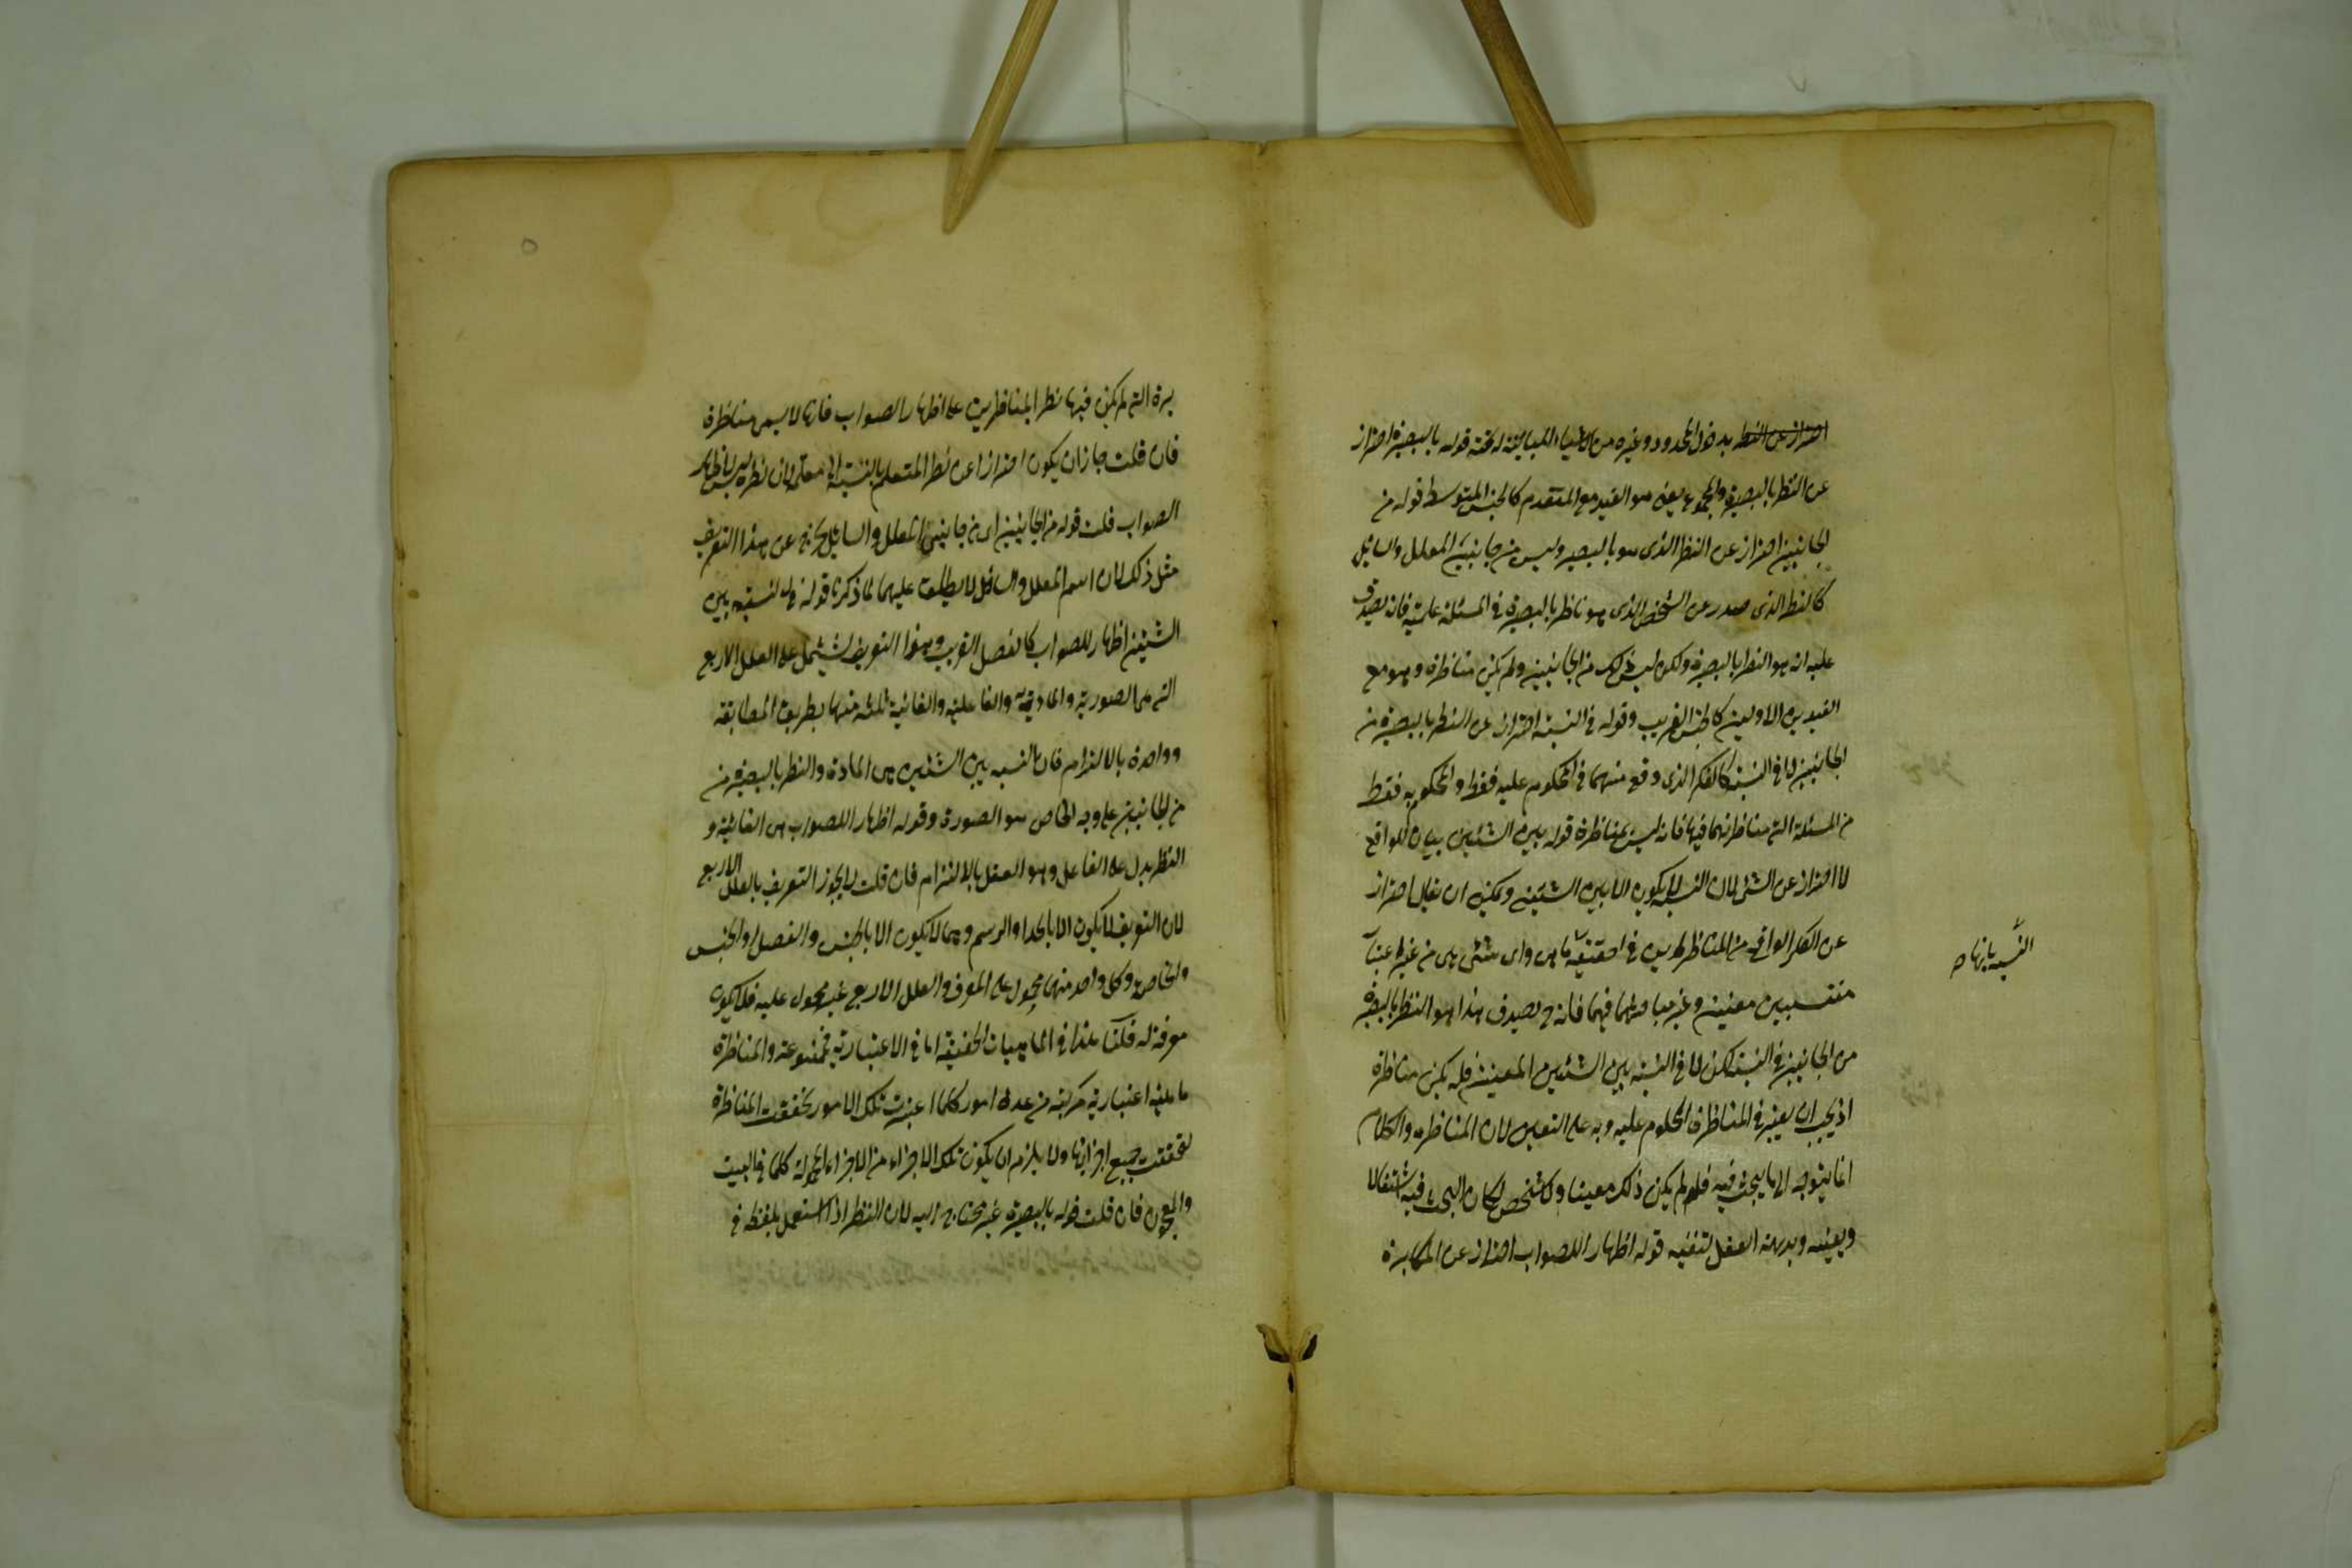 احتراز عن النظر يدخل المحدود وغيره من الاشياء المباينة له تحته قوله بالبصيرة احتراز
عن النظر بالبصر والمجموع يعنى هو القيد مع المتقدم كالجنس المتوسط قوله من
الجانبين احتراز عن النظر الذى هو بالبصيرة وليس من جانبى المعلل والسائل
كالنظر الذى صدر عن الشخص الذى هو ناظر بالبصيرة فى المسئلة علمية فانه يصدق
عليه انه هو النظر بالبصيرة ولكن ليس ذلك من الجانبين ولم يكن مناظرة وهو مع
القيدين الاولين كالجنس القريب وقوله فى النسبة احتراز عن النظر بالبصيرة من
الجانبين لا فى النسبة كالفكر الذى وقع منهما فى المحكوم عليه فقط والمحكوم به فقط
من المسئلة التى مناظرتهما فيها فانه ليس بمناظرة قوله بين الشيئين بيان للواقع
لا احتراز عن الشئ لان النسبة لا يكون الا بين الشيئين ويمكن ان يقال احتراز
عن الفكر الواقع من المناظرين فى حقيقة ما هى واى شئ هى من غير اعتبار
منتسبين معينين وغير فيهما فانه ح يصدق هذا هو النظر بالبصيرة
من الجانبين فى النسبة لكن لا فى النسبة بين الشيئين المعينين فلم يكن مناظرة
اذ يجب ان يعين فى المناظرة المحكوم عليه وبه على التعيين لان المناظرة والكلام
انما يتوجه الى ما يبحث فيه فلو لم يكن ذلك معينا ومشخصا لكان البحث فيه اشتغالا
وبديهة العقل تنفيه قوله اظهارا للصواب احتراز عن المكابرة
النسبة بانها ص
برة التى لم يكن فيها نظر المناظرين على اظهار الصواب فانها لا يسمى مناظرة
فان قلت جاز ان يكون احترازا عن نظر المتعلم بالنسبة الى معلمه لان نظره ليس لاظهار
الصواب قلت قوله من الجانبين اى من جانبى المعلل والسائل يخرج عن هذا التعريف
مثل ذلك لان اسم المعلل والسائل لا يطلق عليهما لما ذكرنا قوله فى النسبة بين
الشيئين اظهارا للصواب كالفصل القريب وهذا التعريف يشتمل على العلل الاربع
التى هى الصورية والمادية والفاعلية والغائية ثلثة منها بطريق المطابقة
وواحدة بالالتزام فان النسبة بين الشيئين هى المادة والنظر بالبصيرة من
من الجانبين على وجه الخاص هو الصورة وقوله اظهارا للصواب هى الغائية و
النظر يدل على الفاعل وهو العقل بالالتزام فان قلت لا يجوز التعريف بالعلل الاربع
لان التعريف لا يكون الا بالحد او الرسم وهما لا يكون الا بالجنس والفصل او الجنس
والخاصة وكل واحد منهما محمول على المعرف والعلل الاربع غير محمول عليه فلا يكون
معرفة له قلنا هذا فى الماهيات الحقيقية اما فى الاعتبارية فممنوعة والمناظرة
ماهية اعتبارية مركبة من عدة امور كلما اعتبرت تلك الامور تحققت المناظرة
لتحقق جميع اجزائها ولا يلزم ان يكون تلك الاجزاء من الاجزاء المحمولة كلها فى البيت
والمعجون فان قلت قوله بالبصيرة غير محتاج اليه لان النظر اذا استعمل بلفظة فى